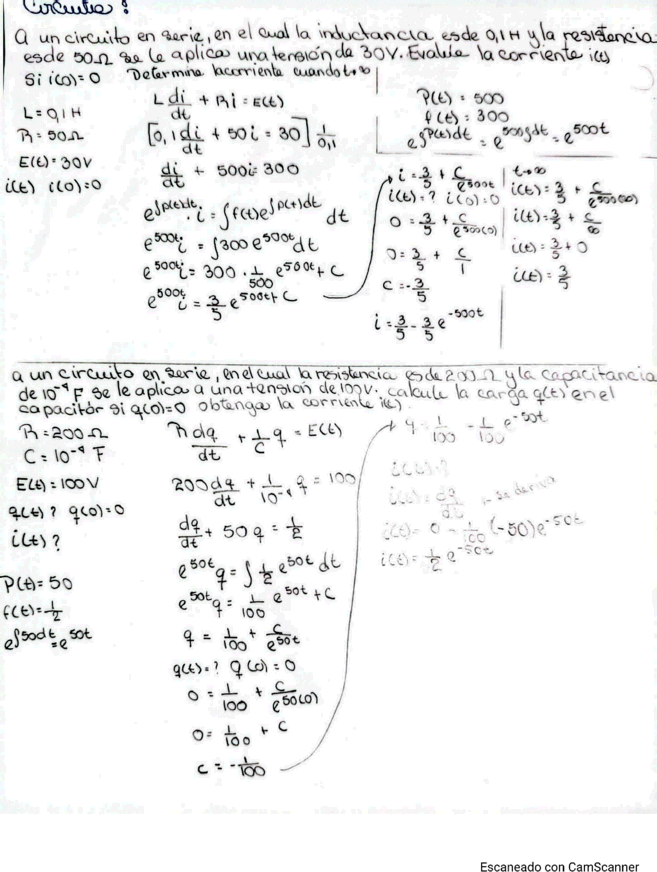 Circuitos :
A un circuito en serie, en el cual la inductancia es de 0,1 H y la resistencia
es de 50Ω se le aplica una tensión de 30V. Evalue la corriente i(t)
Si i(0)=0 Determine la corriente cuando t→∞
L = 0,1 H
R = 50Ω
E(t) = 30V
i(t) i(0)=0
L di/dt + Ri = E(t)
[0,1 di/dt + 50i = 30] 1/0,1
di/dt + 500i = 300
e^∫p(t)dt · i = ∫f(t)e^∫p(t)dt dt
e^500t i = ∫300 e^500t dt
e^500t i = 300 · 1/500 e^500t + C
e^500t i = 3/5 e^500t + C
P(t) = 500
f(t) = 300
e^∫P(t)dt = e^500∫dt = e^500t
i = 3/5 + C/e^500t
i(t) = ? i(0) = 0
0 = 3/5 + C/e^500(0)
0 = 3/5 + C/1
C = -3/5
i = 3/5 - 3/5 e^-500t
t→∞
i(t) = 3/5 + C/e^500(∞)
i(t) = 3/5 + C/∞
i(t) = 3/5 + 0
i(t) = 3/5
A un circuito en serie, en el cual la resistencia es de 200Ω y la capacitancia
de 10^-4 F se le aplica a una tensión de 100V. calcule la carga q(t) en el
capacitor si q(0)=0 obtenga la corriente i(t)
R = 200Ω
C = 10^-4 F
E(t) = 100V
q(t)? q(0)=0
i(t)?
P(t) = 50
f(t) = 1/2
e^∫50dt = e^50t
R dq/dt + 1/C q = E(t)
200 dq/dt + 1/10^-4 q = 100
dq/dt + 50q = 1/2
e^50t q = ∫ 1/2 e^50t dt
e^50t q = 1/100 e^50t + C
q = 1/100 + C/e^50t
q(t) = ? q(0) = 0
0 = 1/100 + C/e^50(0)
0 = 1/100 + C
C = -1/100
q = 1/100 - 1/100 e^-50t
i(t)?
i(t) = dq/dt → se deriva
i(t) = 0 - 1/100 (-50)e^-50t
i(t) = 1/2 e^-50t
Escaneado con CamScanner